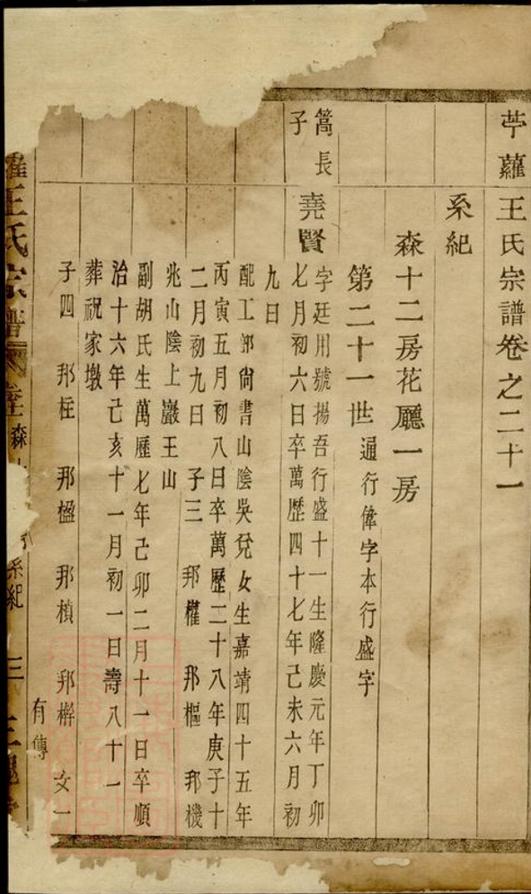 苧蘿王氏宗譜卷之二十一
系紀
森十二房花廳一房
第二十一世通行偉字本行盛字
篙長子
堯賢字廷用號揚吾行盛十一生隆慶元年丁卯
七月初六日卒萬歷四十七年己未六月初
九日
配工部尚書山陰吳兌女生嘉靖四十五年
丙寅五月初八日卒萬歷二十八年庚子十
二月初九日 子三 邦權 邦樞 邦機
兆山陰上巖王山
副胡氏生萬歷七年己卯二月十一日卒順
治十六年己亥十一月初一日壽八十一
葬祝家墩
子四 邦柱 邦楹 邦楨 邦㮤 女一
有傳
蘿王氏宗譜
森
系紀
三
三槐